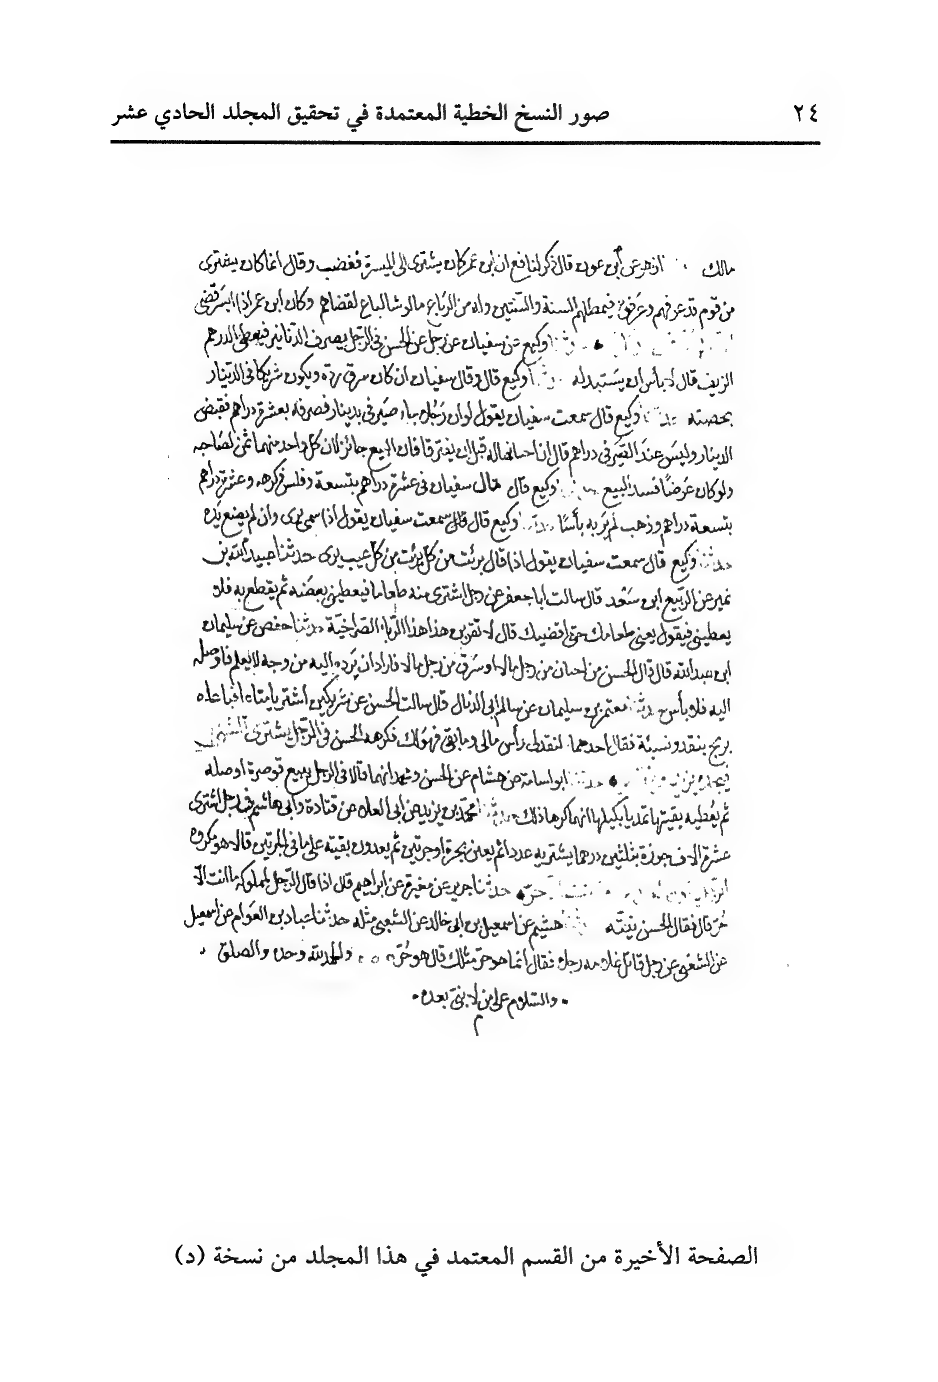 ٢٤
صور النسخ الخطية المعتمدة في تحقيق المجلد الحادي عشر
مالك ازهر عن ابن عون قال ذكر لنافع ان ابن عمر كان يشترى الى الميسرة فغضب وقال انما كان يشترى
من قوم قد عرفهم وعرفوه فيمطلهم السنة والسنتين وكان ابن عمر اذا ايسر قضى
وكيع عن سفيان عن رجل عن الحسن فى الرجل يصرف الدنانير فيعطى الدرهم
الزيف قال لا بأس ان يستبدله وكيع قال وقال سفيان ان كان ستوق رده ويكون شريكا فى الدينار
بحصته وكيع قال سمعت سفيان يقول لو ان رجلا جاء صيرفى بدينار فصرفه بعشرة دراهم فقبض
الدينار وليس عند الصيرفى دراهم قال قبل ان يفترقا فان البيع جائز لان كل واحد منهما ثمن لصاحبه
ولو كان عرضا فسد البيع وكيع قال قال سفيان فى عشرة دراهم بتسعة وفلس فكرهه وعشرة دراهم
بتسعة دراهم وذهب لم ير به بأسا وكيع قال قال سمعت سفيان يقول اذا سمى برى وان لم يضع يده
حدثنا وكيع قال سمعت سفيان يقول اذا قال برئت من كل من كل عيب برى حدثنا عبيد الله بن
نمير عن الربيع ابن سعد قال سالت ابا جعفر عن رجل اشترى منه طعاما فيعطينى بعضه ثم يقطع به فلا
يعطينى فيقول يعنى طعامك حتى اقضيك قال لا تقربن هذا هذا الرباء الصراحية حدثنا حفص عن سليمان
ابى عبد الله قال قال الحسن من اختان من رجل مالا او سرق من رجل مالا فاراد ان يرده اليه من وجه لا يعلم فاوصله
اليه فلا بأس معتمر بن سليمان عن سالم ابى الذيال قال سالت الحسن عن شريكين اشتريا متاعا فباعاه
بربح بنقد ونسيئة فقال احدهما انقد لى رأس مالى وما بقى فهو لك فكرهه الحسن فى الرجل يشترى
ابو اسامة عن هشام عن الحسن ومحمد انهما قالا فى الرجل يبيع قوصرة
ثم يعطيه بقيتها انهما كرها ذلك محمد بن يزيد عن ابى العلاء عن قتادة وابى هاشم فى رجل اشترى
عشرة الاف جوزة بثلثين درهما يشتريه عددا ثم يعد بقيته على ما فى قالا هو مكروه
حدثنا جرير عن مغيرة عن ابراهيم قال اذا قال الرجل لمملوكه ما انت الا
حر قال فقال الحسن نيته هشيم عن اسمعيل بن ابى خالد عن الشعبى مثله حدثنا عباد بن العوام عن اسمعيل
عن الشعبى عن رجل قاتل غلامه رجل فقال انما هو حر مثلك قال هو حر والحمد لله وحده والصلوة
والسلام على من لا نبى بعده
م
الصفحة الأخيرة من القسم المعتمد في هذا المجلد من نسخة (د)